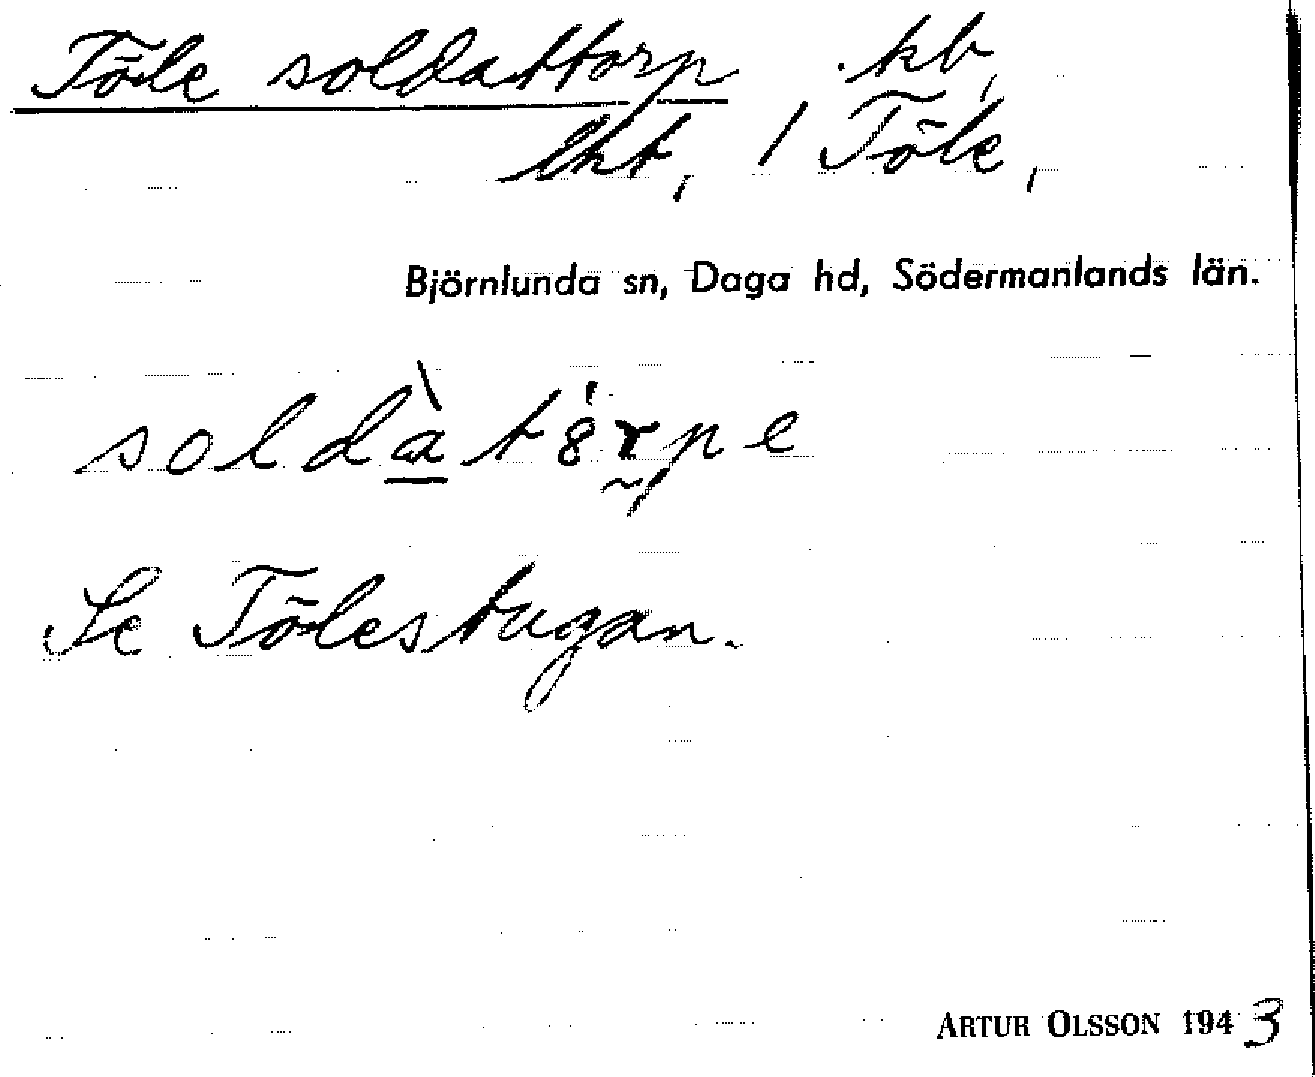 Töle soldattorp kb,
lht, / Töle,
Björnlunda sn, Daga hd, Södermanlands län.
soldàt8́rpe
Se Tölestugan.
ARTUR OLSSON 1943